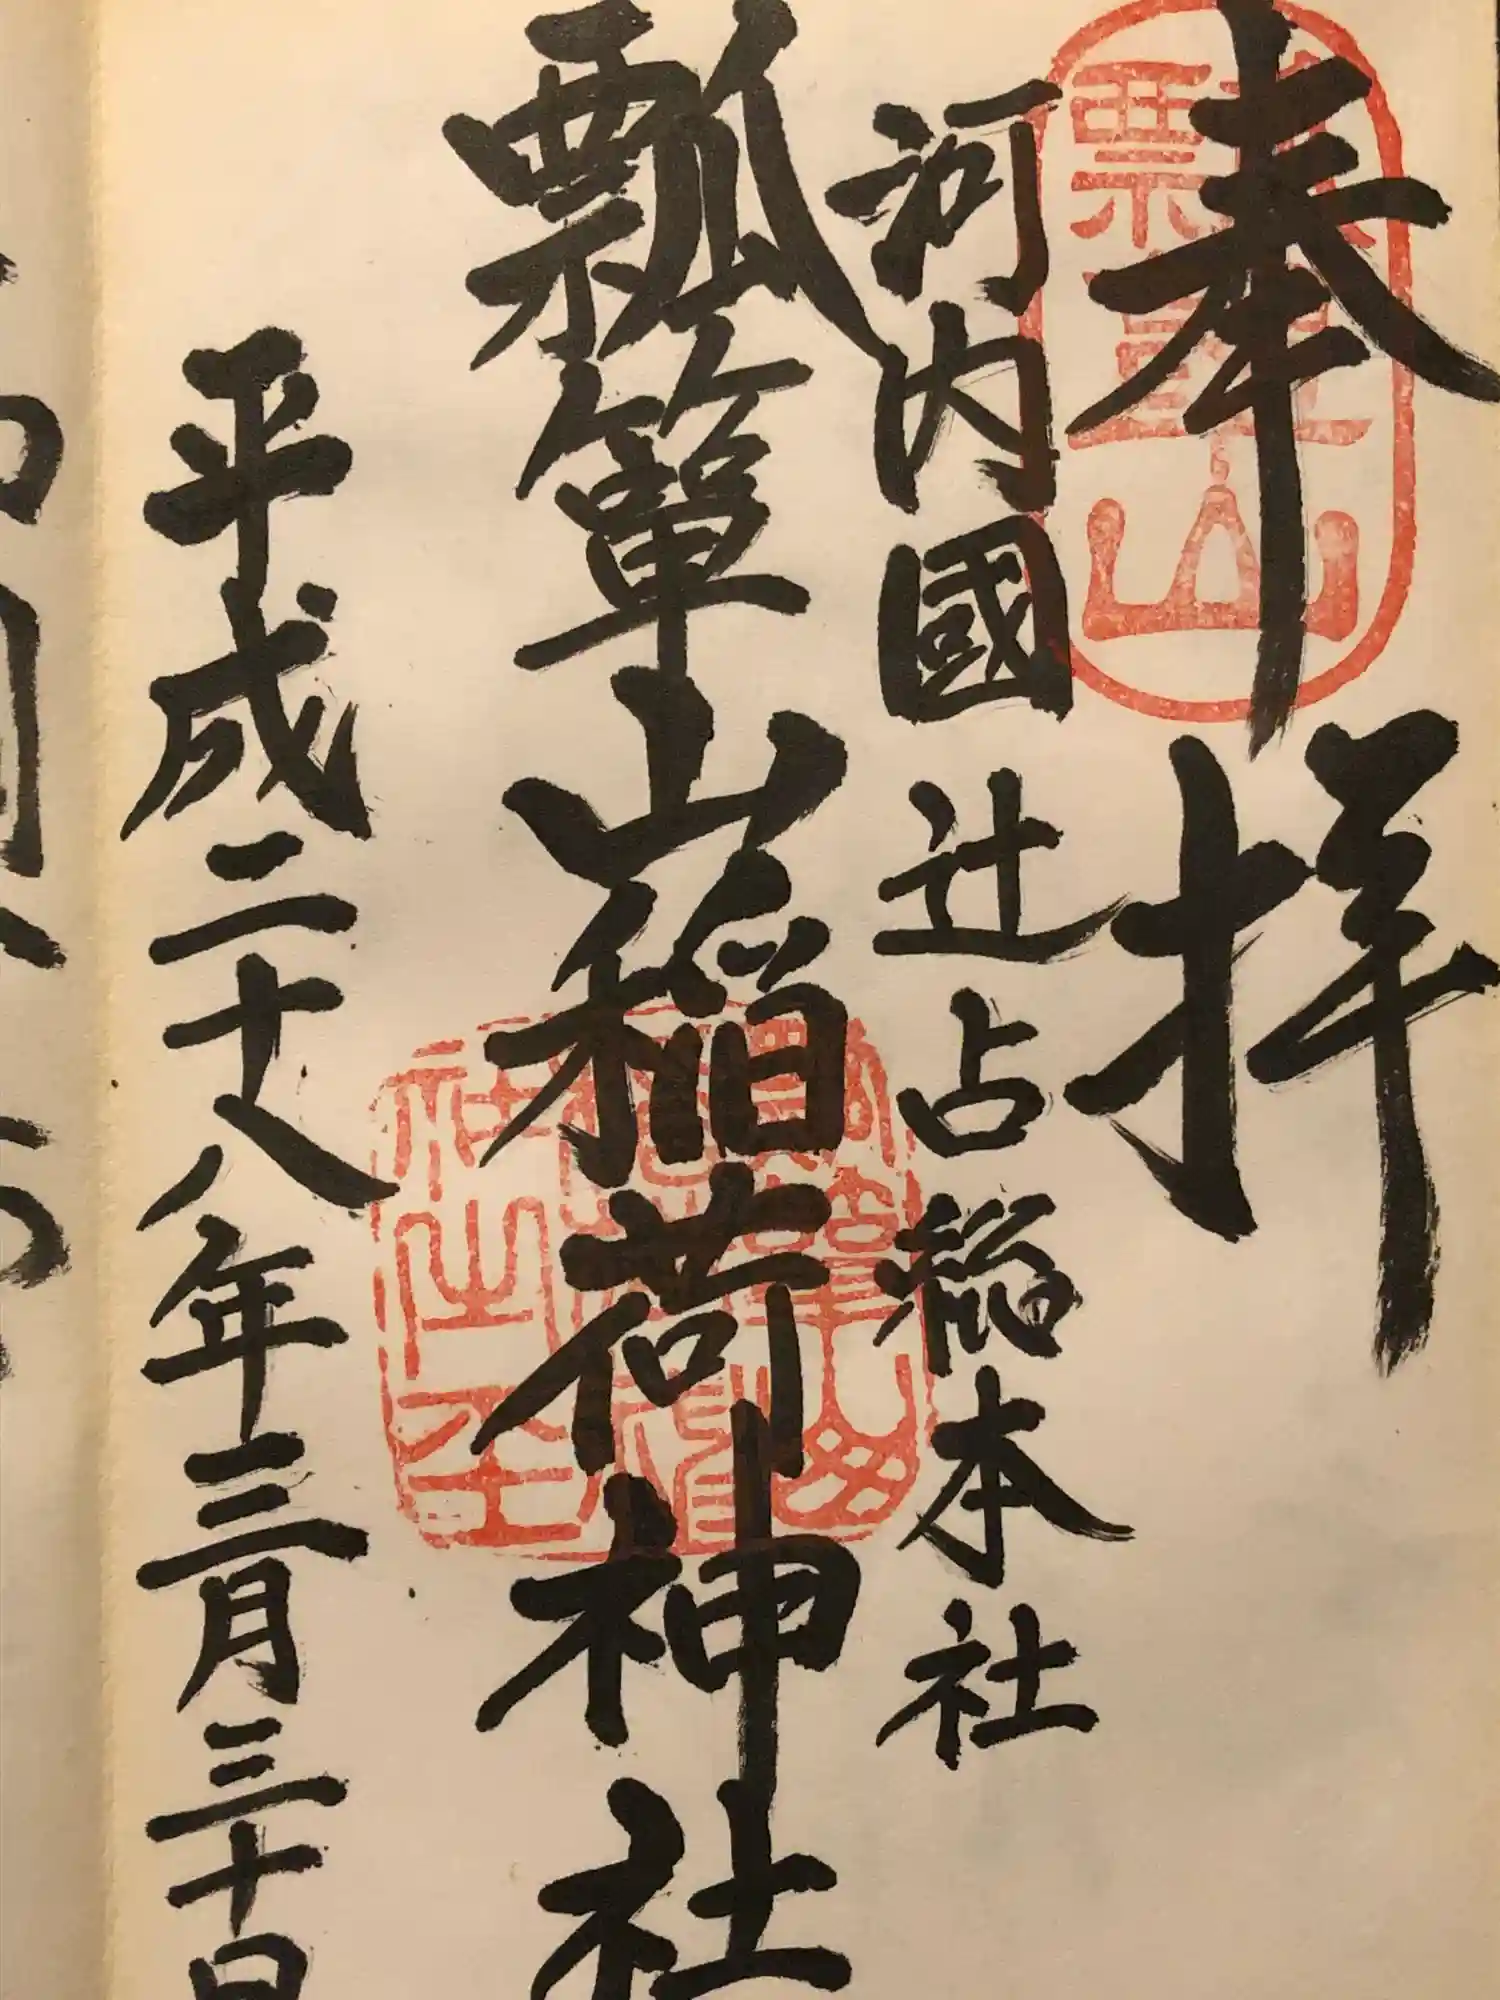 奉拝
河内國辻占稲本社
瓢箪山稲荷神社
平成二十八年三月三十日